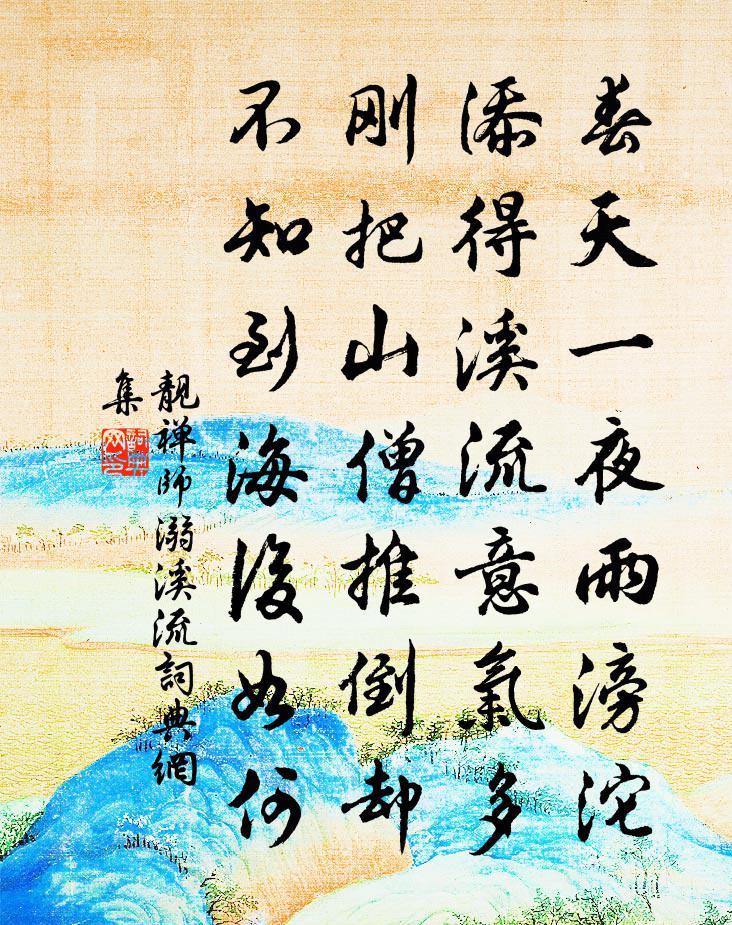 春天一夜雨滂沱
添得溪流意氣多
刚把山僧推倒却
不知到海後如何
靚禅師溺溪流詞典網
集